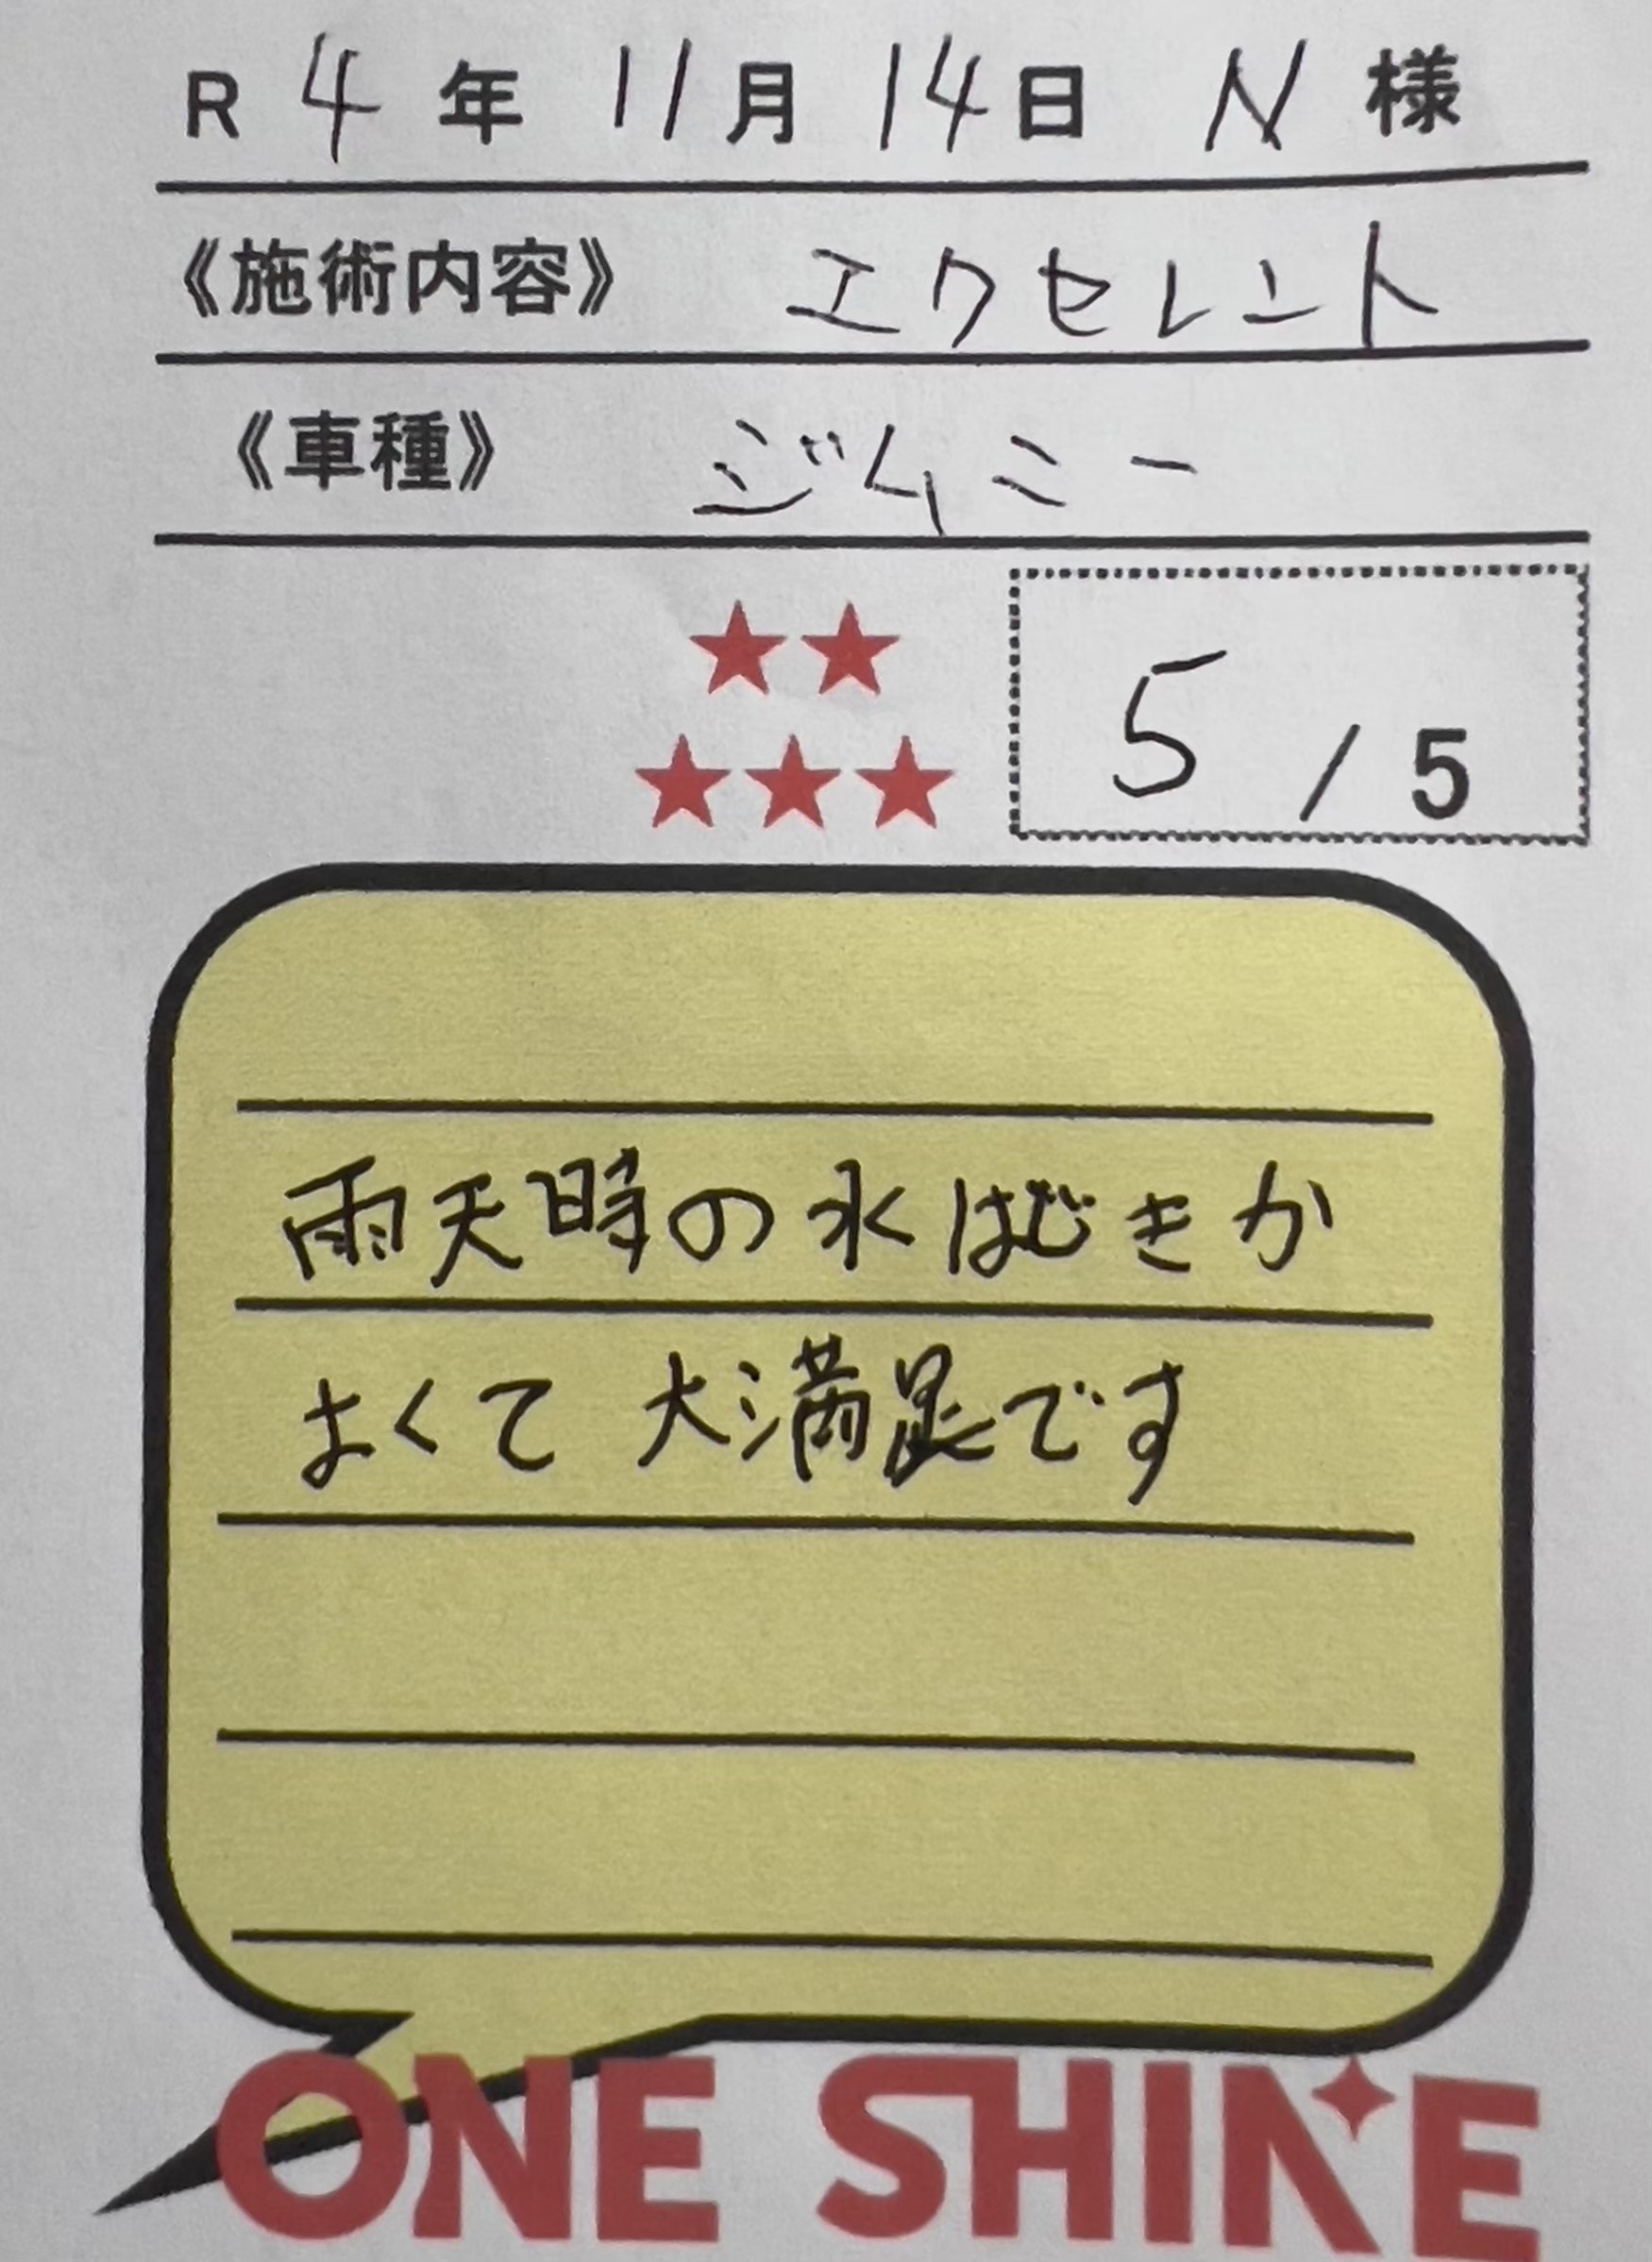 R 4 年 11 月 14 日 N 様
《施術内容》 エクセレント
《車種》 ジムニー
★★
★★★
5 / 5
雨天時の水はじきが
よくて 大満足です
ONE SHINE